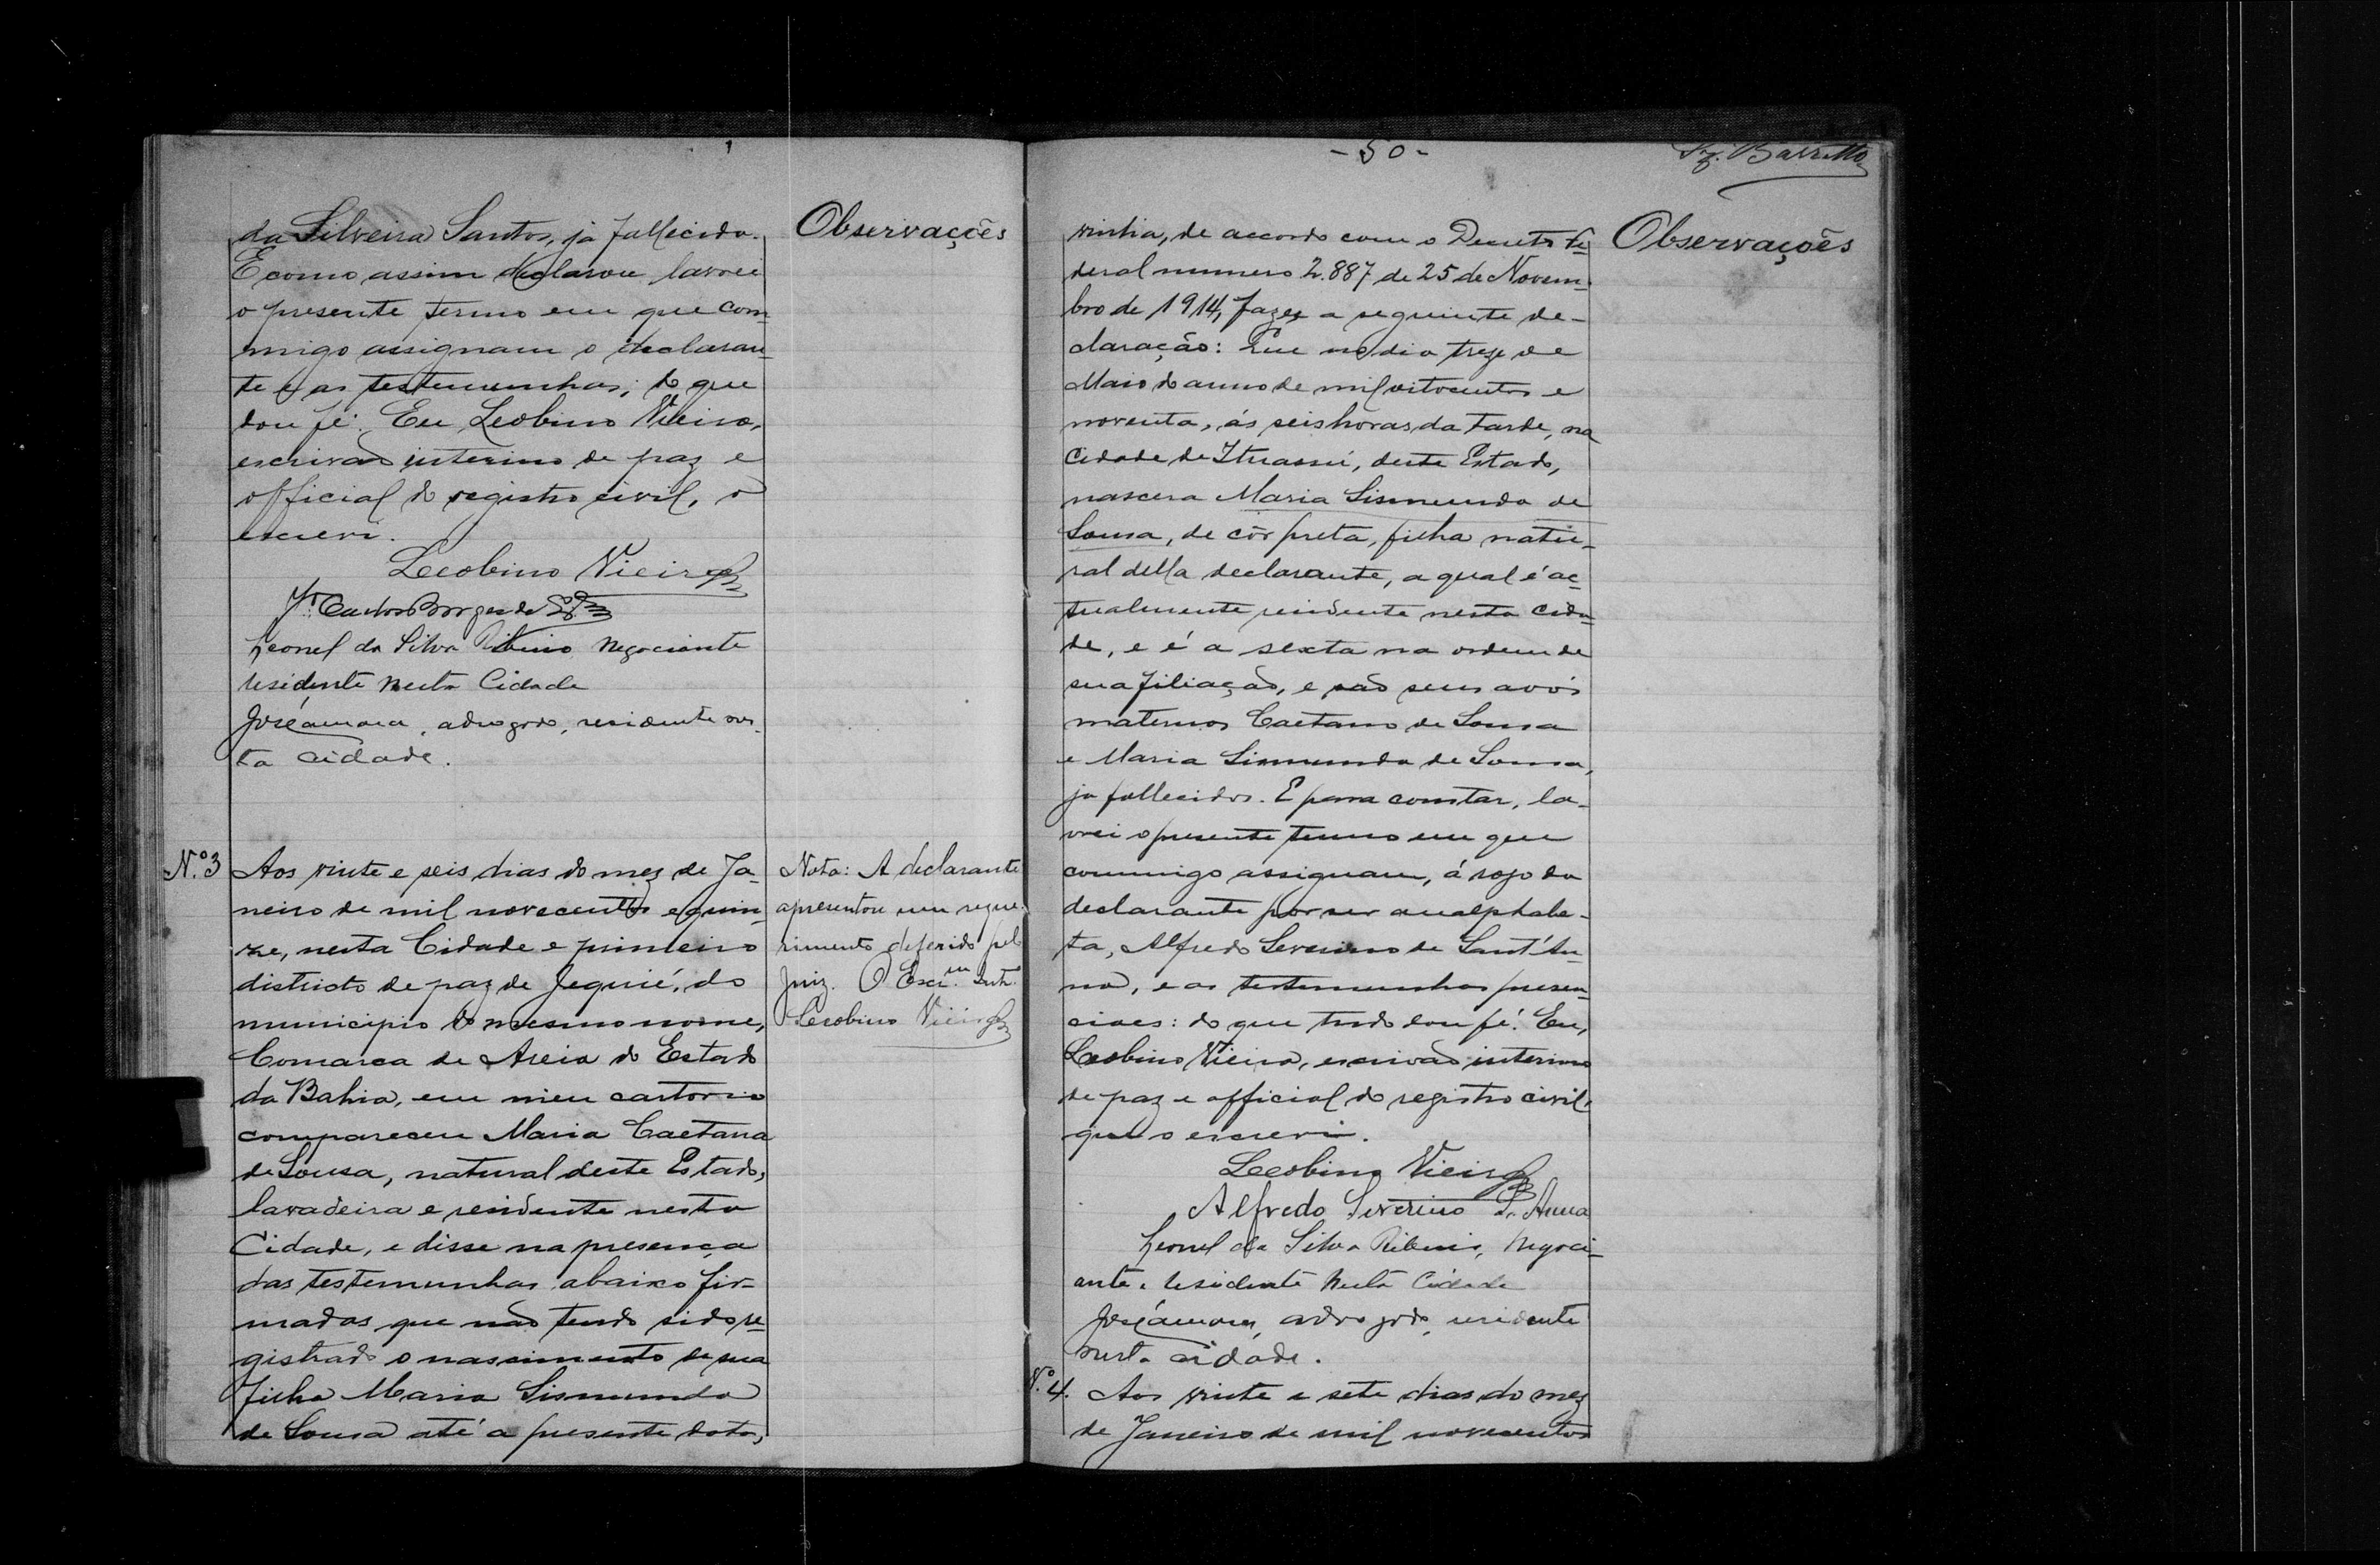 Observações
da Silveira Santos, já fallecido.
E como assim declarou lavrei
o presente termo em que com-
migo assignam o declaran-
te e as testemunhas; do que
dou fé. Eu Leobino Vieira,
escrivão interino de paz e
official do registro civil, o
escrevi.
Leobino Vieira
Leonel da Silva Ribeiro Negociante
residente nesta Cidade
José amara, advogado, residente nes-
ta cidade.
N.º 3
Aos vinte e seis dias do mez de Ja-
neiro de mil novecentos e quin-
ze, nesta Cidade e primeiro
districto de paz de Jequié, do
municipio do mesmo nome,
Comarca de Areia do Estado
da Bahia, em meu cartorio
compareceu Maria Caetana
de Sousa, natural deste Estado,
lavadeira e residente nesta
Cidade, e disse na presença
das testemunhas abaixo fir-
madas que não tendo sido re-
gistrado o nascimento de sua
filha Maria Sismunda
de Sousa até a presente data,
Nota: A declarante
apresentou um reque-
rimento deferido pelo
Juiz. O Escr.m Int.º
Leobino Vieira
- 50 -
Barretto
Observações
vinha, de accordo com o Decreto Fe-
deral numero 2.887 de 25 de Novem-
bro de 1914, fazer a seguinte de-
claração: Que no dia treze de
Maio do anno de mil oitocentos e
noventa, ás seis horas da tarde, na
Cidade de Ituassú, deste Estado,
nascera Maria Sismunda de
Sousa, de côr preta, filha natu-
ral della declarante, a qual é ac-
tualmente residente nesta cida-
de, e é a sexta na ordem de
sua filiação, e são seus avós
maternos Caetano de Sousa
e Maria Sismunda de Sousa,
ja fallecidos. E para constar, la-
vrei o presente termo em que
commigo assignam, á rogo da
declarante por ser analphabe-
ta, Alfredo Severino de Sant'An-
na, e as testemunhas presen-
ciaes: do que tudo dou fé. Eu,
Leobino Vieira, escrivão interino
de paz e official do registro civil,
que o escrevi.
Leobino Vieira
Alfredo Severino S. Anna
Leonel da Silva Ribeiro, Negoci-
ante, residente nesta Cidade
José amara, advogado, residente
nesta cidade.
N.º 4.
Aos vinte e sete dias do mez
de Janeiro de mil novecentos